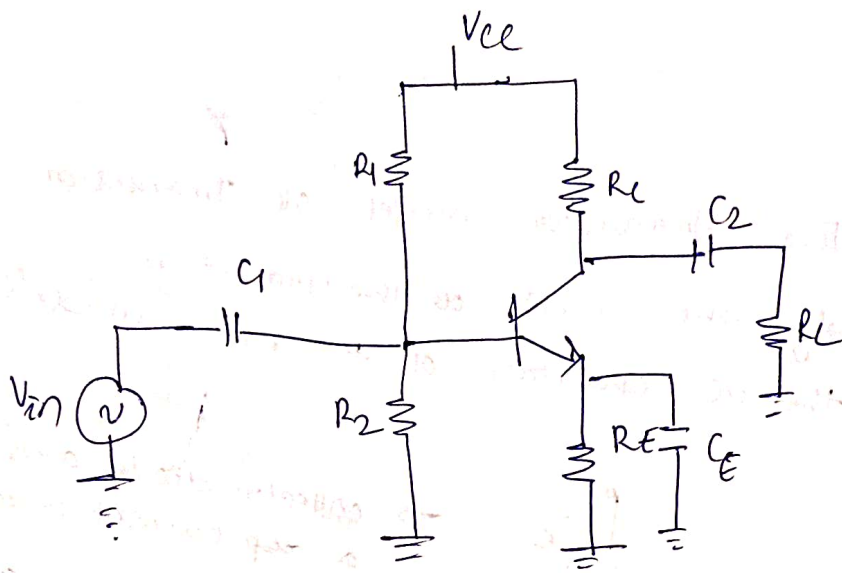 Vcc
R1
Rc
C2
C1
RL
Vin
R2
RE
CE